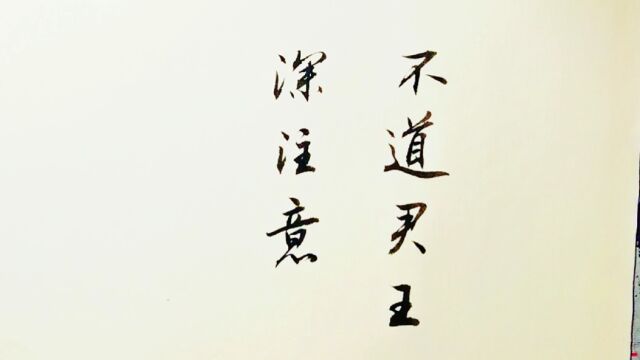 不道君王
深注意